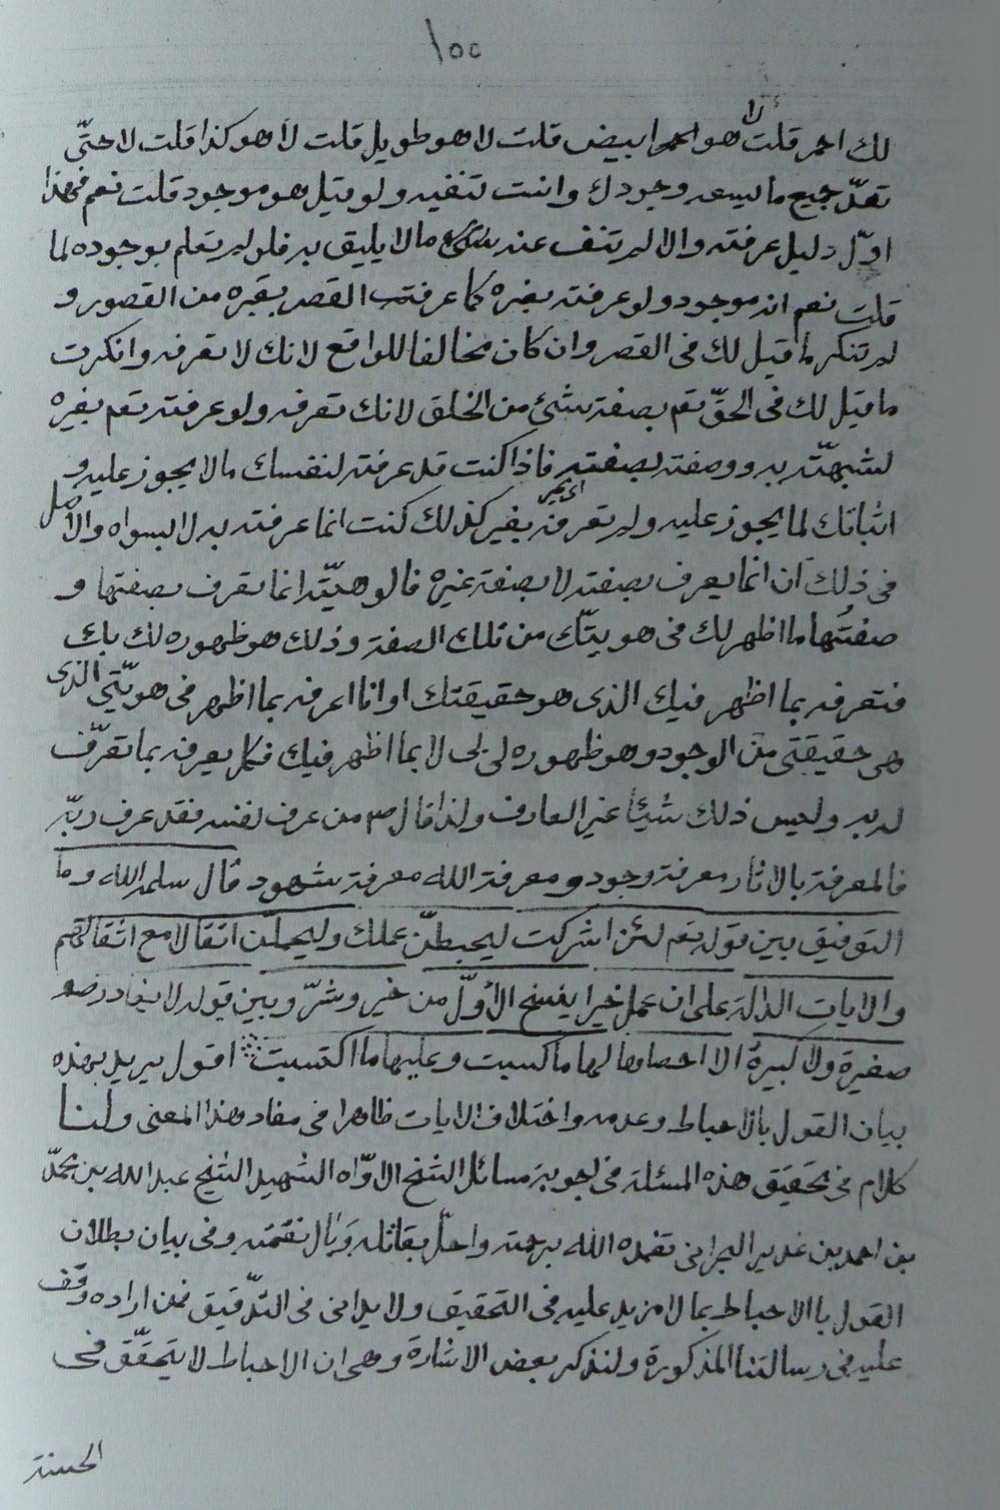 ١٥٥
لك احمر قلت لا هو احمر ابيض قلت لا هو طويل قلت لا هو كذا قلت لا حتّى
تعدّ جميع ما يسعه وجودك وانت تنفيه ولو قيل هو موجود قلت نعم فهذا
اوّل دليل عرفته والا لم تنف عنه شئ مالا يليق به فلو لم تعلم بوجوده لما
قلت نعم انه موجود ولو عرفته بغيره كما عرفت القصر بغيره من القصور و
لم تنكر ما قيل لك فى القصر وان كان مخالفا للواقع لانك لا تعرفه وانكرت
ما قيل لك فى الحقّ تعم بصفة شئ من الخلق لانك تعرفه ولو عرفته تعم بغيره
لشبهتّه به ووصفته بصفته فاذا كنت قد عرفته لنفسك مالا يجوز عليه و
اثباتك لما يجوز عليه ولم تعرفه بغير كذلك كنت انما عرفته به لا بسواه والاصل
فى ذلك ان انما يعرف بصفته لا بصفة غيره فالوهيّته انما تعرف بصفتها و
صفتُها ما اظهر لك فى هويتّك من تلك الصفة وذلك هو ظهوره لك بك
فتعرفه بما اظهر فيك الذى هو حقيقتك او انا اعرفه بما اظهر فى هويّتى الذى
هى حقيقتى من الوجود وهو ظهوره لى بى لا بما اظهر فيك فكل يعرفه بما تعرّف
له به وليس ذلك شيئاً غير العارف ولذا قال ص من عرف نفسه فقد عرف ربّه
فالمعرفة بالاثار معرفة وجود ومعرفة الله معرفة شهود قال سلمه الله وما
التوفيق بين قوله تعم لئن اشركت ليحبطنّ عملك وليحملن اثقالا مع اثقالهم
والايات الدالة على ان عمل خيرا ينسخ الاوّل من خير وشرّ وبين قوله لا يغادر
صغيرة ولا كبيرة الا احصاها لها ما كسبت وعليها ما اكتسبت ∴ اقول يريد بهذه
بيان القول بالاحباط وعدمه واختلاف الايات ظاهرا فى مفاد هذا المعنى ولنا
كلام فى تحقيق هذه المسئلة فى اجوبة مسائل الشخ الاوّاه الشهيد الشيخ عبد الله بن محمّد
بن احمد بن غدير البحرانى تغمده الله برحمته واحلّ بقاتله وَبال نقمته وفى بيان بطلان
القول باالاحباط بما لا مزيد عليه فى التحقيق ولا يدانى فى التدّقيق فمن اراده وقف
عليه فى رسالتنا المذكورة ولنذكر بعض الاشارة وهى ان الاحباط لا يتحقّق فى
الحسنة